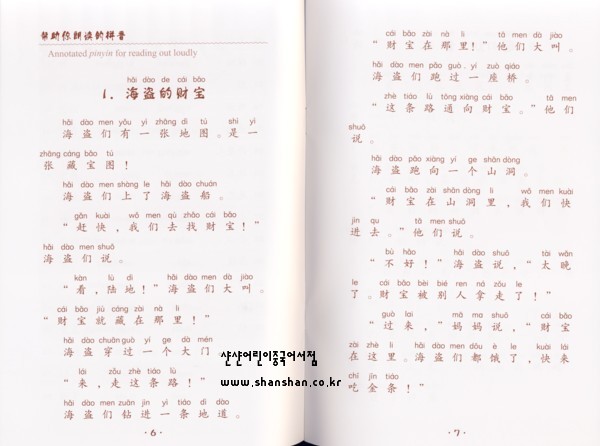 帮助你朗读的拼音
Annotated pinyin for reading out loudly
hǎi dào de cái bǎo
1. 海盗的财宝
hǎi dào men yǒu yì zhāng dì tú shì yì
海盗们有一张地图。是一
zhāng cáng bǎo tú
张藏宝图！
hǎi dào men shàng le hǎi dào chuán
海盗们上了海盗船。
gǎn kuài wǒ men qù zhǎo cái bǎo
“赶快，我们去找财宝！”
hǎi dào men shuō
海盗们说。
kàn lù dì hǎi dào men dà jiào
“看，陆地！”海盗们大叫。
cái bǎo jiù cáng zài nà li
“财宝就藏在那里！”
hǎi dào chuān guò yí ge dà mén
海盗穿过一个大门
lái zǒu zhè tiáo lù
“来，走这条路！”
hǎi dào men zuān jìn yì tiáo dì dào
海盗们钻进一条地道。
·6·
cái bǎo zài nà li tā men dà jiào
“财宝在那里！”他们大叫。
hǎi dào men pǎo guò yí zuò qiáo
海盗们跑过一座桥。
zhè tiáo lù tōng xiàng cái bǎo tā men
“这条路通向财宝。”他们
shuō
说。
hǎi dào pǎo xiàng yí ge shān dòng
海盗跑向一个山洞。
cái bǎo zài shān dòng li wǒ men kuài
“财宝在山洞里，我们快
jìn qu tā men shuō
进去。”他们说。
bù hǎo hǎi dào shuō tài wǎn
“不好！”海盗说，“太晚
le cái bǎo bèi bié ren ná zǒu le
了。财宝被别人拿走了！”
guò lai mā ma shuō cái bǎo
“过来，”妈妈说，“财宝
zài zhè li hǎi dào men dōu è le kuài lái
在这里。海盗们都饿了，快来
chī jīn tiáo
吃金条！”
·7·
샨샨어린이중국어서점
www.shanshan.co.kr